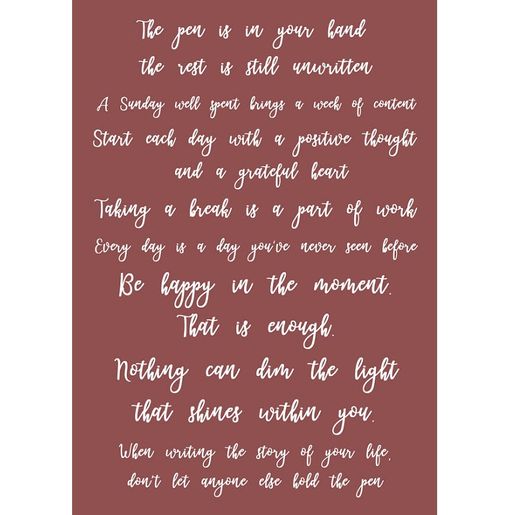 The pen is in your hand
the rest is still unwritten
A Sunday well spent brings a week of content
Start each day with a positive thought
and a grateful heart
Taking a break is a part of work
Every day is a day you've never seen before
Be happy in the moment.
That is enough.
Nothing can dim the light
that shines within you.
When writing the story of your life,
don't let anyone else hold the pen